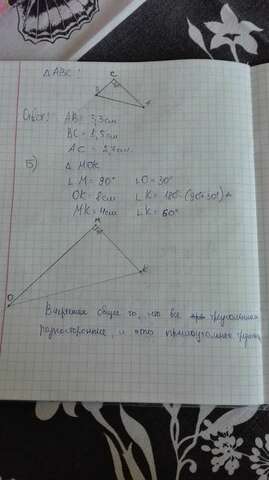 Δ ABC:
C
B
A
Ответ: AB = 3,3 см
BC = 1,5 см
AC = 2,7 см.
Б) Δ MOK
∟M = 90° ∟O = 30°
OK = 8см ∟K = 180-(90+30)
MK = 4см ∟K = 60°
M
K
O
общее то, что все треугольники
разносторонние, и это прямоугольные